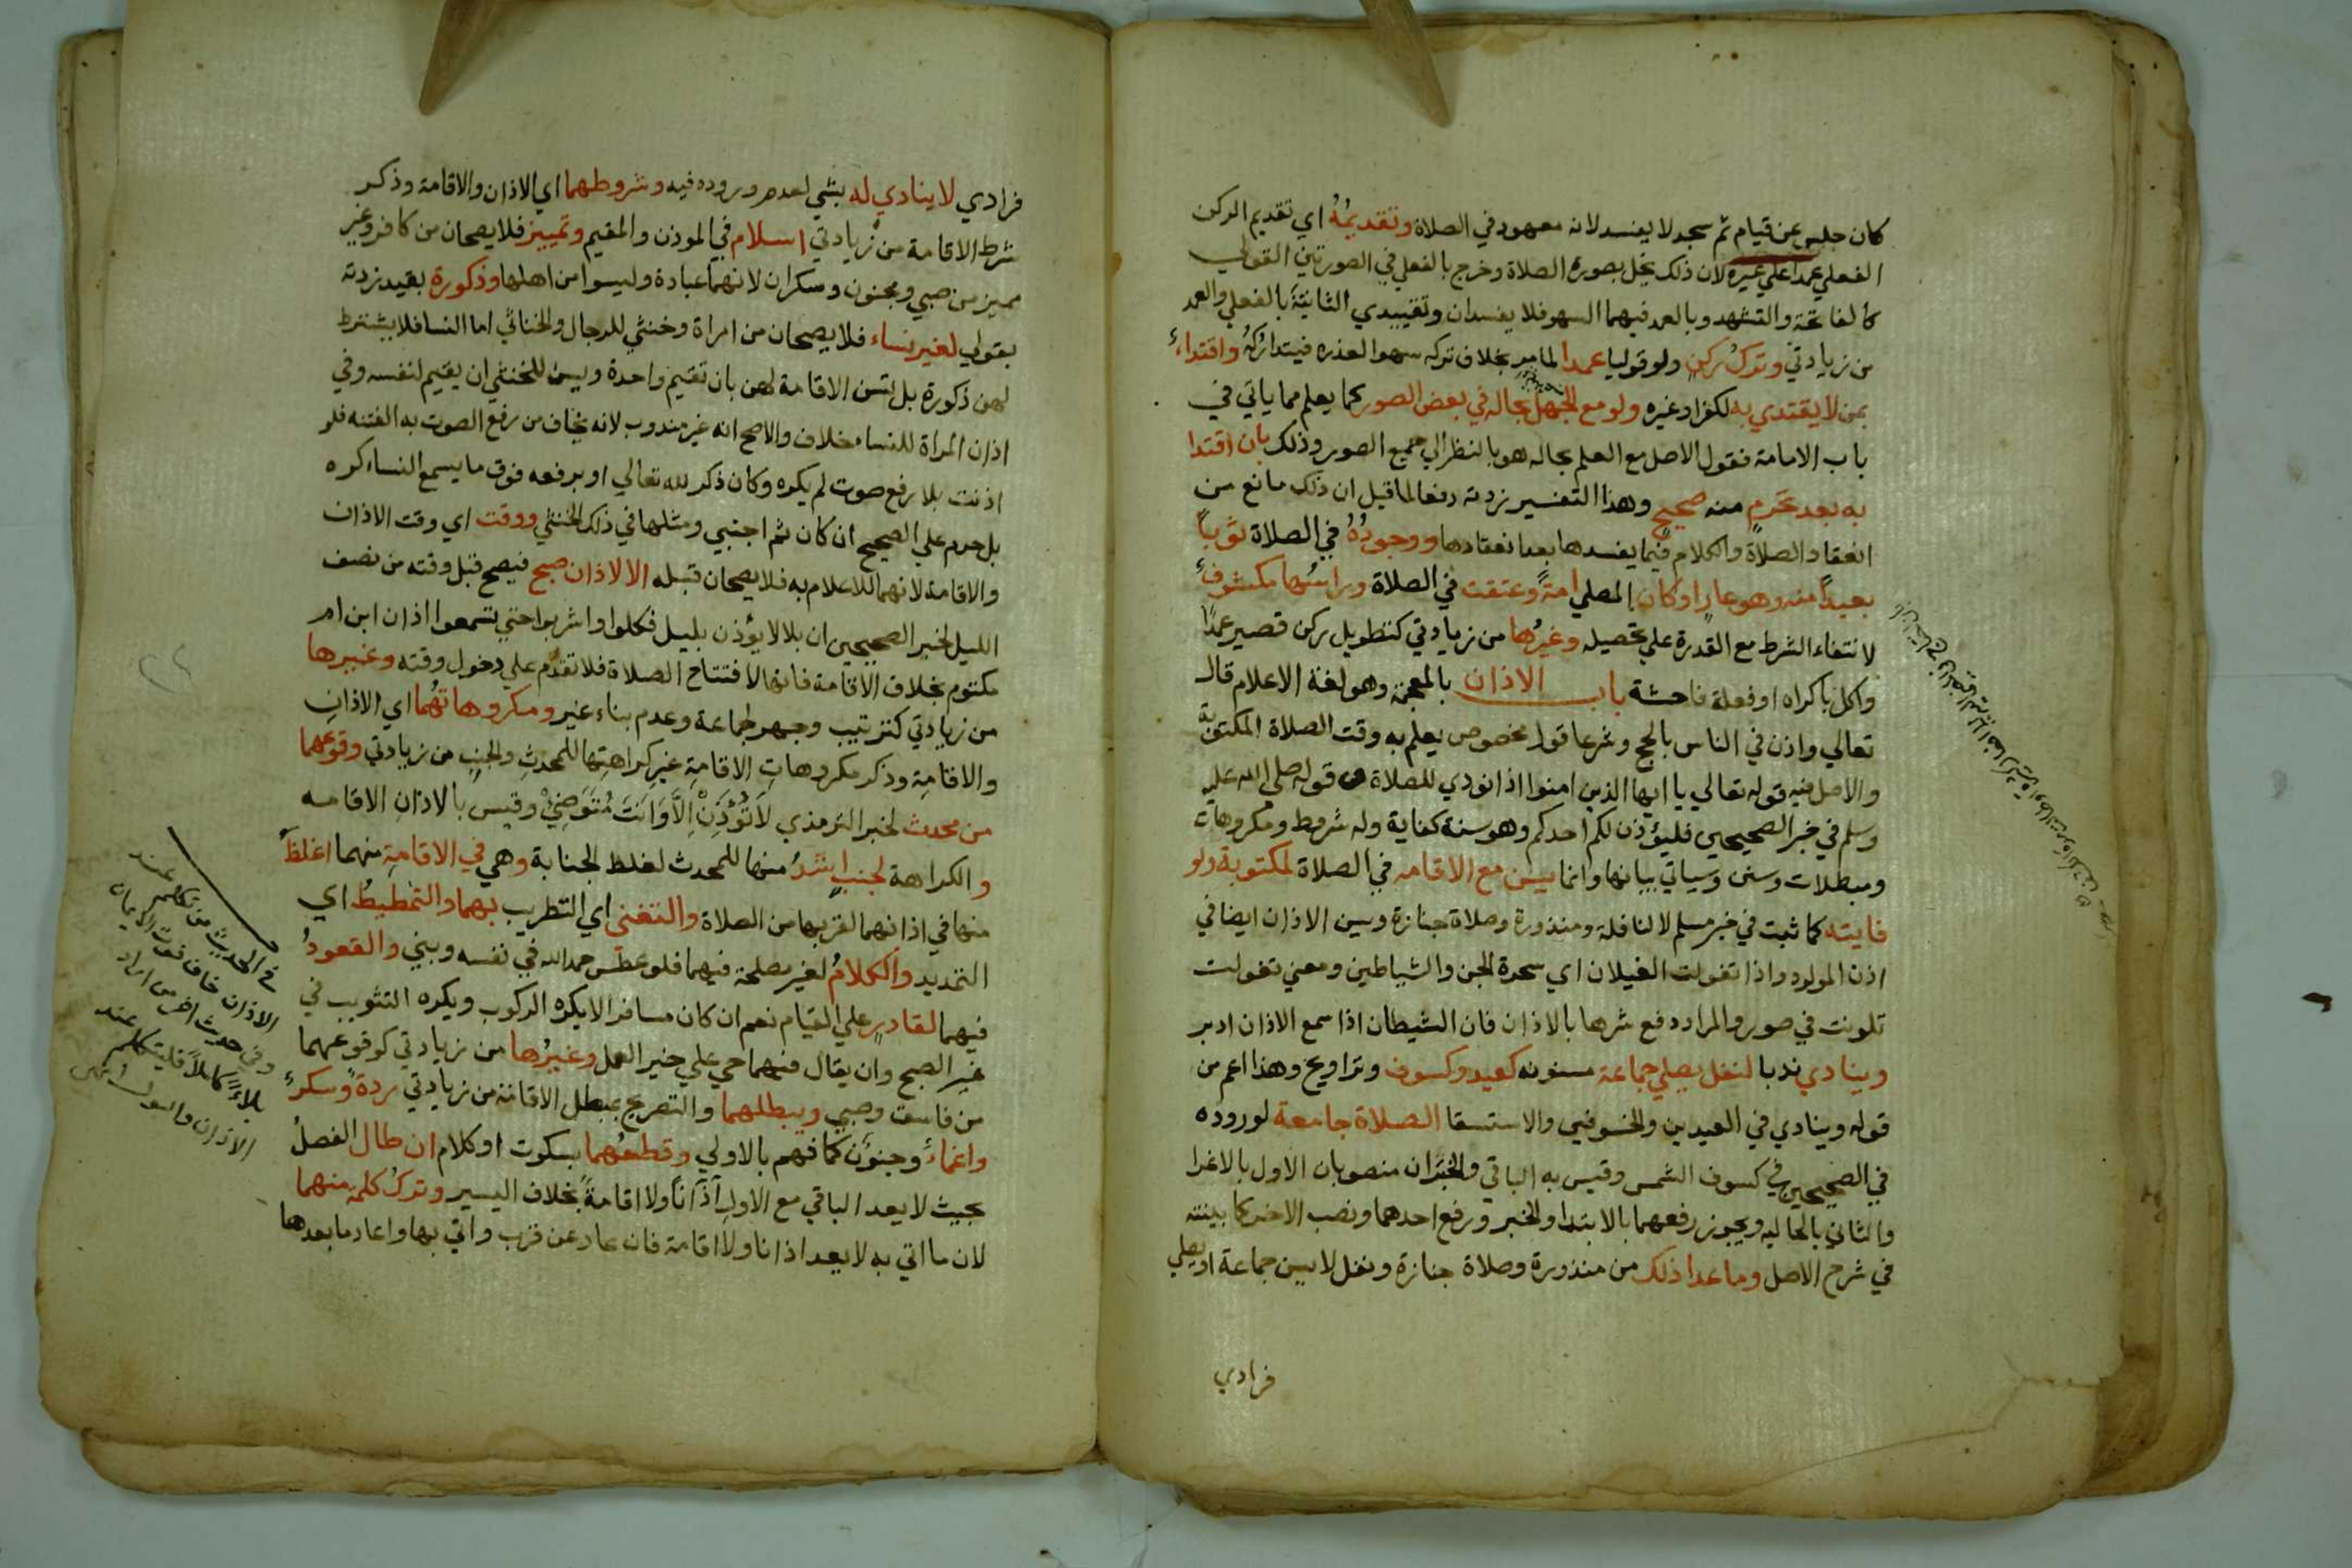 كان جلس عن قيام ثم سجد لا يفسد لانه معهود في الصلاة وتقديمُهُ اي تقديم الركن
الفعلي عمدا علي غيره لان ذلك يخل بصورة الصلاة وخرج بالفعلي في الصورتين القولي
كالفاتحة والتشهد وبالعمد فيهما السهو فلا يفسدان وتقييدي الثانيّةَ بالفعلي والعمد
من زيادتي وتركُ ركنٍ ولو قوليا عمدا لما مر بخلاف تركه سهوا لعذره فيتداركُهُ واقتداءٌ
بمن لا يقتدي به لكفر او غيره ولو مع الجهل بحاله في بعض الصور كما يعلم مما ياتي في
باب الامامة فقول الاصل مع العلم بحاله هو بالنظر الي جميع الصور وذلك بان اقتدا
به بعد تحرمٍ منه صحيحٍ وهذا التفسير زدته دفعا لما قيل ان ذلك مانع من
انعقاد الصلاة والكلام فيما يفسدها بعد انعقادها ووجودُهُ في الصلاة ثوباً
بعيداً منه وهو عارٍ او كان المصلي امةً وعتقت في الصلاة وراسُها مكشوفٌ
لانتفاء الشرط مع القدرة علي تحصيله وغيرُها من زيادتي كتطويل ركن قصير عمدًا
واكل باكراه او فعلة فاحشة باب الاذان بالمعجمة وهو لغة الاعلام قال
تعالي واذن في الناس بالحج وشرعا قول مخصوص يعلم به وقت الصلاة المكتوبة
والاصل فيه قوله تعالي يا ايها الذين امنوا اذا نودي للصلاة وقوله صلي الله عليه
وسلم في خبر الصحيحين فليؤذن لكم احدكم وهو سنة كفاية وله شروط ومكروهات
ومبطلات وسنن وسياتي بيانها وانما يسن مع الاقامه في الصلاة لمكتوبة ولو
فايته كما ثبت في خبر مسلم لا لنافلة ومنذورة وصلاة جنازة ويسن الاذان ايضا في
اذن المولود واذا تغولت الغيلان اي سحرة الجن والشياطين ومعني تغولت
تلونت في صور والمراد دفع شرها بالاذان فان الشيطان اذا سمع الاذان ادبر
وينادي ندبا لنفل يصلي جماعة مسنونه كعيد وكسوف وتراويح وهذا اعم من
قوله وينادي في العيدين والخسوفين والاستسقا الصلاة جامعة لوروده
في الصحيحين في كسوف الشمس وقيس به الباقي والجزان منصوبان الاول بالاغرا
والثاني بالحاليه ويجوز رفعهما بالابتدا والخبر ورفع احدهما ونصب الاخر كما بينته
في شرح الاصل وما عدا ذلك من منذورة وصلاة جنازة ونفل لا يسن جماعة او يصلي
فرادي
فرادي لا ينادي له بشي لعدم وروده فيه وشروطهما اي الاذان والاقامة وذكر
شرط الاقامة من زيادتي اسلام في الموذن والمقيم وتمييز فلا يصحان من كافر وغير
مميز من صبي ومجنون وسكران لانهما عبادة وليسوا من اهلها وذكورة بقيد زدته
بقولي لغير نساء فلا يصحان من امراة وخنثي للرجال والخناثي اما النسا فلا يشترط
لهن ذكورة بل تسن الاقامة لهن بان تقيم واحدة ويسن للخنثي ان يقيم لنفسه وفي
اذان المراة للنساء خلاف والاصح انه غير مندوب لانه يخاف من رفع الصوت به الفتنه فلو
اذنت بلا رفع صوت لم يكره وكان ذكر لله تعالي او برفعه فوق ما يسمع النساء كره
بل حرم علي الصحيح ان كان ثم اجنبي ومثلها في ذلك الخنثي ووقت اي وقت الاذان
والاقامة لانهما للاعلام به فلا يصحان قبله الا لاذان صبح فيصح قبل وقته من نصف
الليل لخبر الصحيحين ان بلالا يؤذن بليل فكلوا واشربوا حتي تسمعوا اذان ابن ام
مكتوم بخلاف الاقامة فانها لافتتاح الصلاة فلا تقدم علي دخول وقته وغيرها
من زيادتي كترتيب وجهر لجماعة وعدم بناء غير ومكروهاتهُما اي الاذانِ
والاقامةِ وذكر مكروهاتِ الاقامةِ غيرِ كراهتِها للمحدثِ والجنبِ من زيادتي وقوعهما
من محدث لخبر الترمذي لا تُؤذِنْ اِلاَّ وَانتَ مُتَوَضِئٌ وقيس بالاذانِ الاقامه
والكراهة لجنب اشدُّ منها للمحدث لغلظ الجنابة وهي في الاقامةِ منهما اغلظُ
منها في اذانهما لقربها من الصلاة والتغني اي التطريب بهما والتمطيطُ اي
التمديد والكلامُ لغير مصلحة فيهما فلو عطس حمد الله في نفسه ويبني والقعودُ
فيهما لقادرٍ علي القيام نعم ان كان مسافر الا يكره الركوب ويكره التثويب في
غير الصبح وان يقال فيهما حي علي خير العمل وغيرُها من زيادتي كوقوعهما
من فاسق وصبي ويبطلهما والتصريح بمبطل الاقامة من زيادتي ردةٌ وسكرٌ
واغماءٌ وجنونٌ كما فهم بالاولي وقطعُهما بسكوت او كلام ان طال الفصلُ
بحيث لا يعد الباقي مع الاول اَذاناً ولا اقامةً بخلاف اليسير وتركُ كلمةٍ منهما
لان ما اتي به لا يعد اذانا ولا اقامة فان عاد عن قرب واتي بها واعاد ما بعدها
في الحديث من تكلم عند
الاذان خاف
وفي حديث اخر من اراد
فليتكلم عند